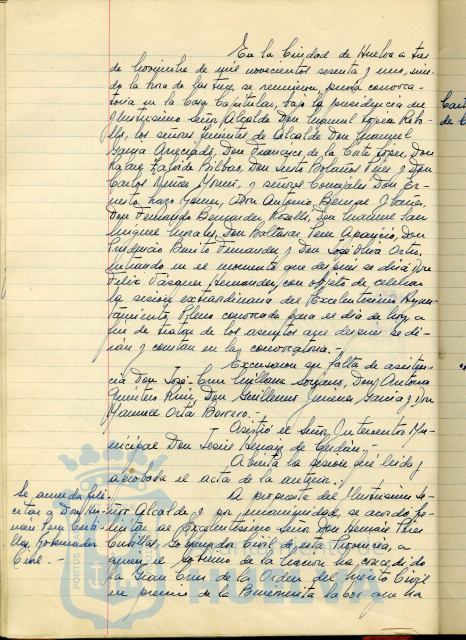 En la Ciudad de Huelva a tres
de Noviembre de mil novecientos sesenta y uno, sien-
do la hora de las trece, se reunieron, previa convoca-
toria en la Casa Capitular, bajo la presidencia del
Ilustrisimo Señor Alcalde Don Manuel López Rebo-
llo, los señores Tenientes de Alcalde Don Manuel
Garcia Don Francisco de la Corte López, Don
Rafael Bilbao, Don Sixto Bolaños Pérez y Don
Carlos Núñez y señores Concejales Don Er-
nesto Gómez, Don Antonio y Garcia,
Don Fernando Bernárdez Roselló, Don Manuel San
Miguel Morales, Don Baltasar Pérez Aparicio, Don
Prudencio Benito Fernandez y Don José Oliva Orta,
entrando en el momento que despues se dirá Don
Felix Vázquez Hernandez, con objeto de celebrar
la sesión extraordinaria del Excelentisimo Ayun-
tamiento Pleno convocada para el dia de hoy a
fin de tratar de los asuntos que despues se di-
rán y constan en la convocatoria.-
Excusaron su falta de asisten-
cia Don José Orellana Don Antonio
Quintero Ruiz, Don Guillermo Jimenez Garcia y Don
Manuel Orta Borrero.-
Asistió el Señor Interventor Mu-
nicipal Don Jesús de
Abierta la sesión fué leida y
aprobada el acta de la anterior.-
A propuesta del Ilustrisimo Se-
ñor Alcalde y por unanimidad, se acordó fe-
licitar al Excelentisimo Señor Don Hernán Pérez
Cubillas, Gobernador Civil de esta Provincia, a
quien el de la Nación ha concedido
la Gran Cruz de la Orden del Mérito Civil
en premio de la Benemérita labor que ha
Se acuerda feli-
citar a Don Her-
nán Pérez Cubi-
llas, Gobernador
Civil.-
HUELVA